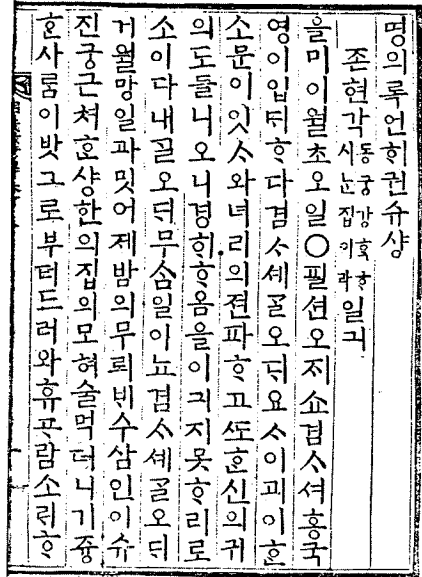 명의록언ᄒᆡ권슈샹
존현각동궁강ᄒᆞᆨᄒᆞ시ᄂᆞᆫ집이라일긔
을미이월초오일○필션오ᄌᆡ쇼겸ᄉᆞ셔홍국
영이입ᄃᆡᄒᆞ다겸ᄉᆞ셰ᄀᆞᆯ오ᄃᆡ요ᄉᆞ이괴이ᄒᆞᆫ
소문이잇ᄉᆞ와녀리의젼파ᄒᆞ고ᄯᅩᄒᆞᆫ신의귀
의도들니오니경ᄒᆡᄒᆞ옴을이긔지못ᄒᆞ리로
소이다내ᄀᆞᆯ오ᄃᆡ무ᄉᆞᆷ일이뇨겸ᄉᆞ셰ᄀᆞᆯ오ᄃᆡ
거월망일과밋어제밤의무뢰ᄇᆡ수삼인이슈
진궁근쳐ᄒᆞᆫ샹한의집의모혀술먹더니기즁
ᄒᆞᆫ사ᄅᆞᆷ이밧그로부터드러와휴ᄑᆞ람소ᄅᆡᄒᆞ